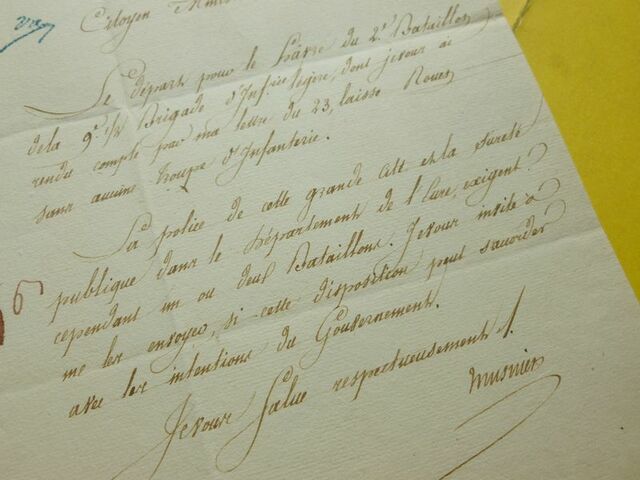 Citoyen Minis
Le départ pour le Havre du 2.e Bataillon
de la 9.e 1/2 Brigade d'Infrie légère, dont je vous ai
rendu compte par ma lettre du 23, laisse Rouen
sans aucune troupe d'Infanterie.
La police de cette grande cité et la sureté
publique dans le Département de l'Eure, exigent
cependant un ou deux Bataillons. Je vous invite à
me les envoyer, si cette disposition peut s'accorder
avec les intentions du Gouvernement.
Je vous Salue respectueusement /.
Musnier